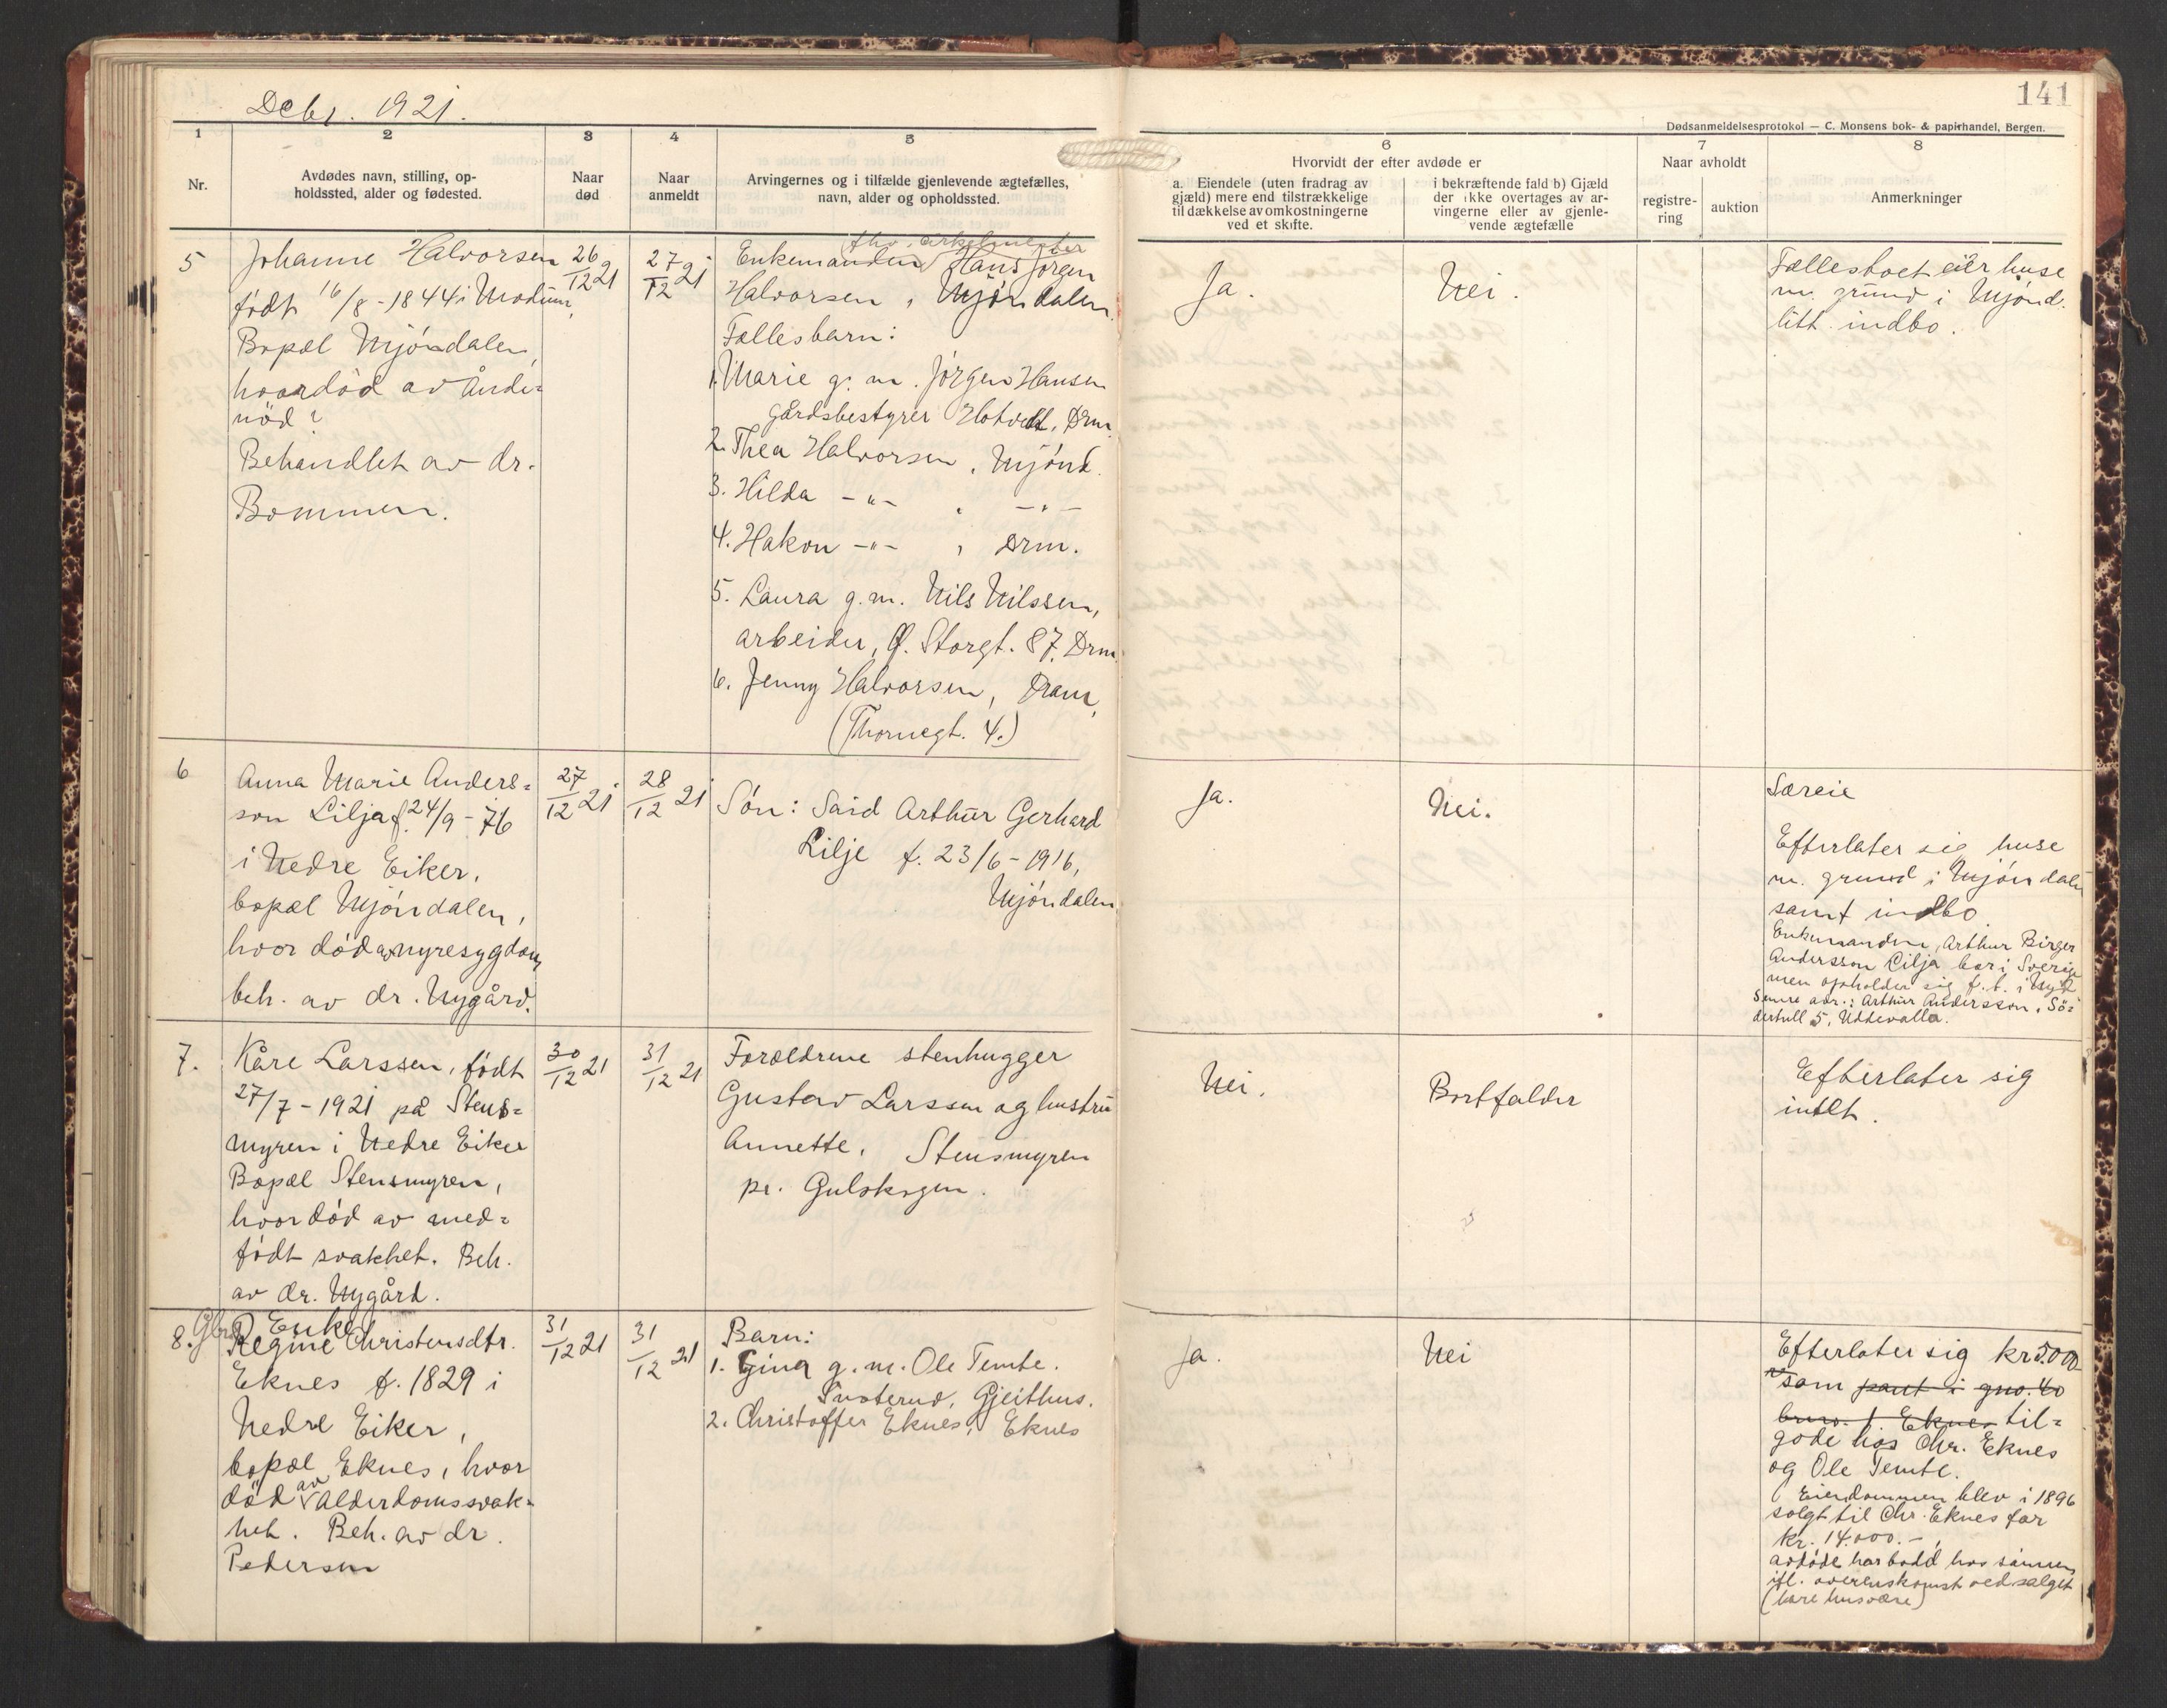 Debr. 1921.
141
Dødsanmeldelsesprotokol — C. Monsens bok- & papirhandel, Bergen.
1
2
3
4
5
6
7
8
Nr.
Avdødes navn, stilling, op-
holdssted, alder og fødested.
Naar
død
Naar
anmeldt
Arvingernes og i tilfælde gjenlevende ægtefælles,
navn, alder og opholdssted.
Hvorvidt der efter avdøde er
a. Eiendele (uten fradrag av
gjæld) mere end tilstrækkelige
til dækkelse av omkostningerne
ved et skifte.
i bekræftende fald b) Gjæld
der ikke overtages av ar-
vingerne eller av gjenle-
vende ægtefælle
Naar avholdt
registre-
ring
auktion
Anmerkninger
5
Johanne Halvorsen
født 16/8-1844 i Modum,
Bopæl Mjøndalen,
hvor død av Ånde-
nød?
Behandlet av dr.
Bommen.
26/12 21
27/12 21
fhv.
Enkemanden Hans Jørgen
Halvorsen, Mjøndalen.
Fællesbarn:
1. Marie g. m. Jørgen Hansen
gårdsbestyrer Hotvedt, Drm.
2. Thea Halvorsen, Mjønd.
3. Hilda -"- , -"-
4. Hakon -"- , Drm.
5. Laura g.m. Nils Nilssen,
arbeider, Ø. Storgt. 87, Drm.
6. Jenny Halvorsen, Dram,
(Thornegt. 4.)
Ja.
Nei.
Fællesboet eier huse
m. grund i Mjønd.
litt indbo.
6
Anna Marie Anders-
son Lilja f. 24/9-76
i Nedre Eiker.
bopæl Mjøndalen,
hvor død av nyresygdom,
beh. av dr. Nygård.
27/12 21
28/12 21
Søn: Said Arthur Gerhard
Lilje f. 23/6-1916,
Mjøndalen
Ja.
Nei.
Særeie
Efterlater sig huse
m. grund i Mjøndalen
samt indbo
Enkemanden, Arthur Birger
Andersson Lilja bor i Sverige
men opholder sig f.t. i Mjd.
Senere adr.: Arthur Andersson, Sö-
dertull 5, Uddevalla.
7.
Kåre Larssen, født
27/7-1921 på Stens-
myren i Nedre Eiker
Bopæl Stensmyren,
hvor død av med-
født svakhet. Beh.
av dr. Nygård.
30/12 21
31/12 21
Forældrene stenhugger
Gustav Larssen og hustru
Annette, Stensmyren
pr. Gulskogen.
Nei.
Bortfalder
Efterlater sig
intet.
8.
Gbr. Enke
Regine Christensdtr.
Eknes f. 1829 i
Nedre Eiker,
bopæl Eknes, hvor
død av Alderdomssvak-
het. Beh. av dr.
Pedersen
31/12 21
31/12 21
Barn:
1. Gina g. m. Ole Temte.
Snoterud, Gjeithus.
2. Christoffer Eknes, Eknes
Ja.
Nei
Efterlater sig kr 500
som pant i gno. 40
bruno. 1 Eknes til-
gode hos Chr. Eknes
og Ole Temte.
Eiendommen blev i 1896
solgt til Chr. Eknes for
kr. 14.000.-,
avdøde har bodd hos sønnen
ifl. overenskomst ved salget
(bare husvære)